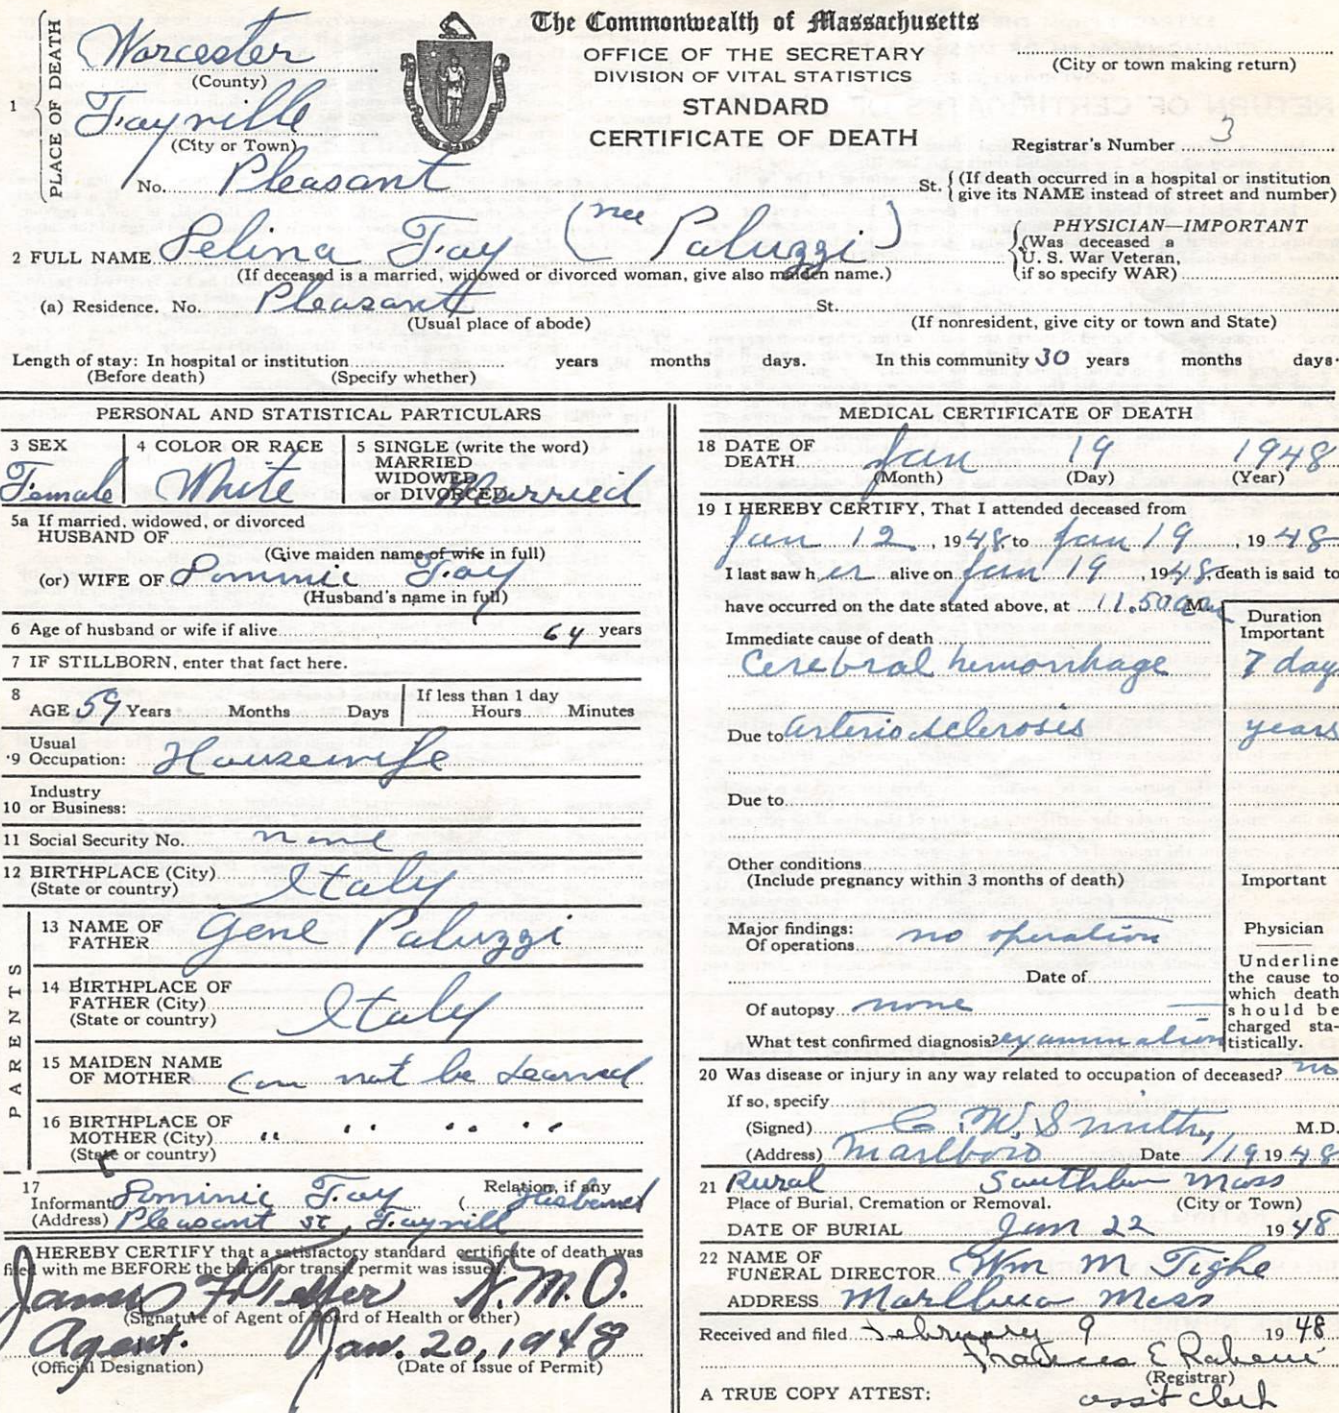 The Commonwealth of Massachusetts
OFFICE OF THE SECRETARY
DIVISION OF VITAL STATISTICS
STANDARD
CERTIFICATE OF DEATH
(City or town making return)
Registrar's Number 3
1 PLACE OF DEATH
Worcester
(County)
Fayville
(City or Town)
No. Pleasant St. (If death occurred in a hospital or institution give its NAME instead of street and number)
2 FULL NAME Selina Fay (nee Paluzzi)
(If deceased is a married, widowed or divorced woman, give also maiden name.)
PHYSICIAN—IMPORTANT
(Was deceased a
U. S. War Veteran,
if so specify WAR)
(a) Residence. No. Pleasant St.
(Usual place of abode) (If nonresident, give city or town and State)
Length of stay: In hospital or institution years months days. In this community 30 years months days.
(Before death) (Specify whether)
PERSONAL AND STATISTICAL PARTICULARS
3 SEX
Female
4 COLOR OR RACE
White
5 SINGLE (write the word)
MARRIED
WIDOWED
or DIVORCED Married
5a If married, widowed, or divorced
HUSBAND OF
(Give maiden name of wife in full)
(or) WIFE OF Dominic Fay
(Husband's name in full)
6 Age of husband or wife if alive 64 years
7 IF STILLBORN, enter that fact here.
8
AGE 59 Years Months Days
If less than 1 day
Hours Minutes
9 Usual
Occupation: Housewife
10 Industry
or Business:
11 Social Security No. none
12 BIRTHPLACE (City) Italy
(State or country)
PARENTS
13 NAME OF
FATHER Gene Paluzzi
14 BIRTHPLACE OF
FATHER (City) Italy
(State or country)
15 MAIDEN NAME
OF MOTHER Can not be learned
16 BIRTHPLACE OF
MOTHER (City) " " " " "
(State or country)
17
Informant Dominic Fay Relation, if any (husband
(Address) Pleasant St, Fayvill
I HEREBY CERTIFY that a satisfactory standard certificate of death was
filed with me BEFORE the burial or transit permit was issued:
James F
(Signature of Agent of Board of Health or other)
Agent. Jan. 20, 1948
(Official Designation) (Date of Issue of Permit)
MEDICAL CERTIFICATE OF DEATH
18 DATE OF
DEATH Jan 19 1948
(Month) (Day) (Year)
19 I HEREBY CERTIFY, That I attended deceased from
Jan 12, 1948, to Jan 19, 1948
I last saw her alive on Jan 19, 1948, death is said to
have occurred on the date stated above, at 11.50 a M.
Duration
Important
Immediate cause of death
Cerebral hemorrhage 7 days
Due to arteriosclerosis years
Due to
Other conditions
(Include pregnancy within 3 months of death)
Important
Major findings:
Of operations no operation
Date of
Of autopsy none
What test confirmed diagnosis? examination
Physician
Underline
the cause to
which death
should be
charged sta-
tistically.
20 Was disease or injury in any way related to occupation of deceased? no
If so, specify
(Signed) C. W. Smith, M.D.
(Address) Marlboro Date 1/19 1948
21 Rural Southboro Mass
Place of Burial, Cremation or Removal. (City or Town)
DATE OF BURIAL Jan 22 1948
22 NAME OF
FUNERAL DIRECTOR Wm M Tighe
ADDRESS Marlboro Mass
Received and filed February 9 1948
Frances E
(Registrar)
A TRUE COPY ATTEST: ass't clerk